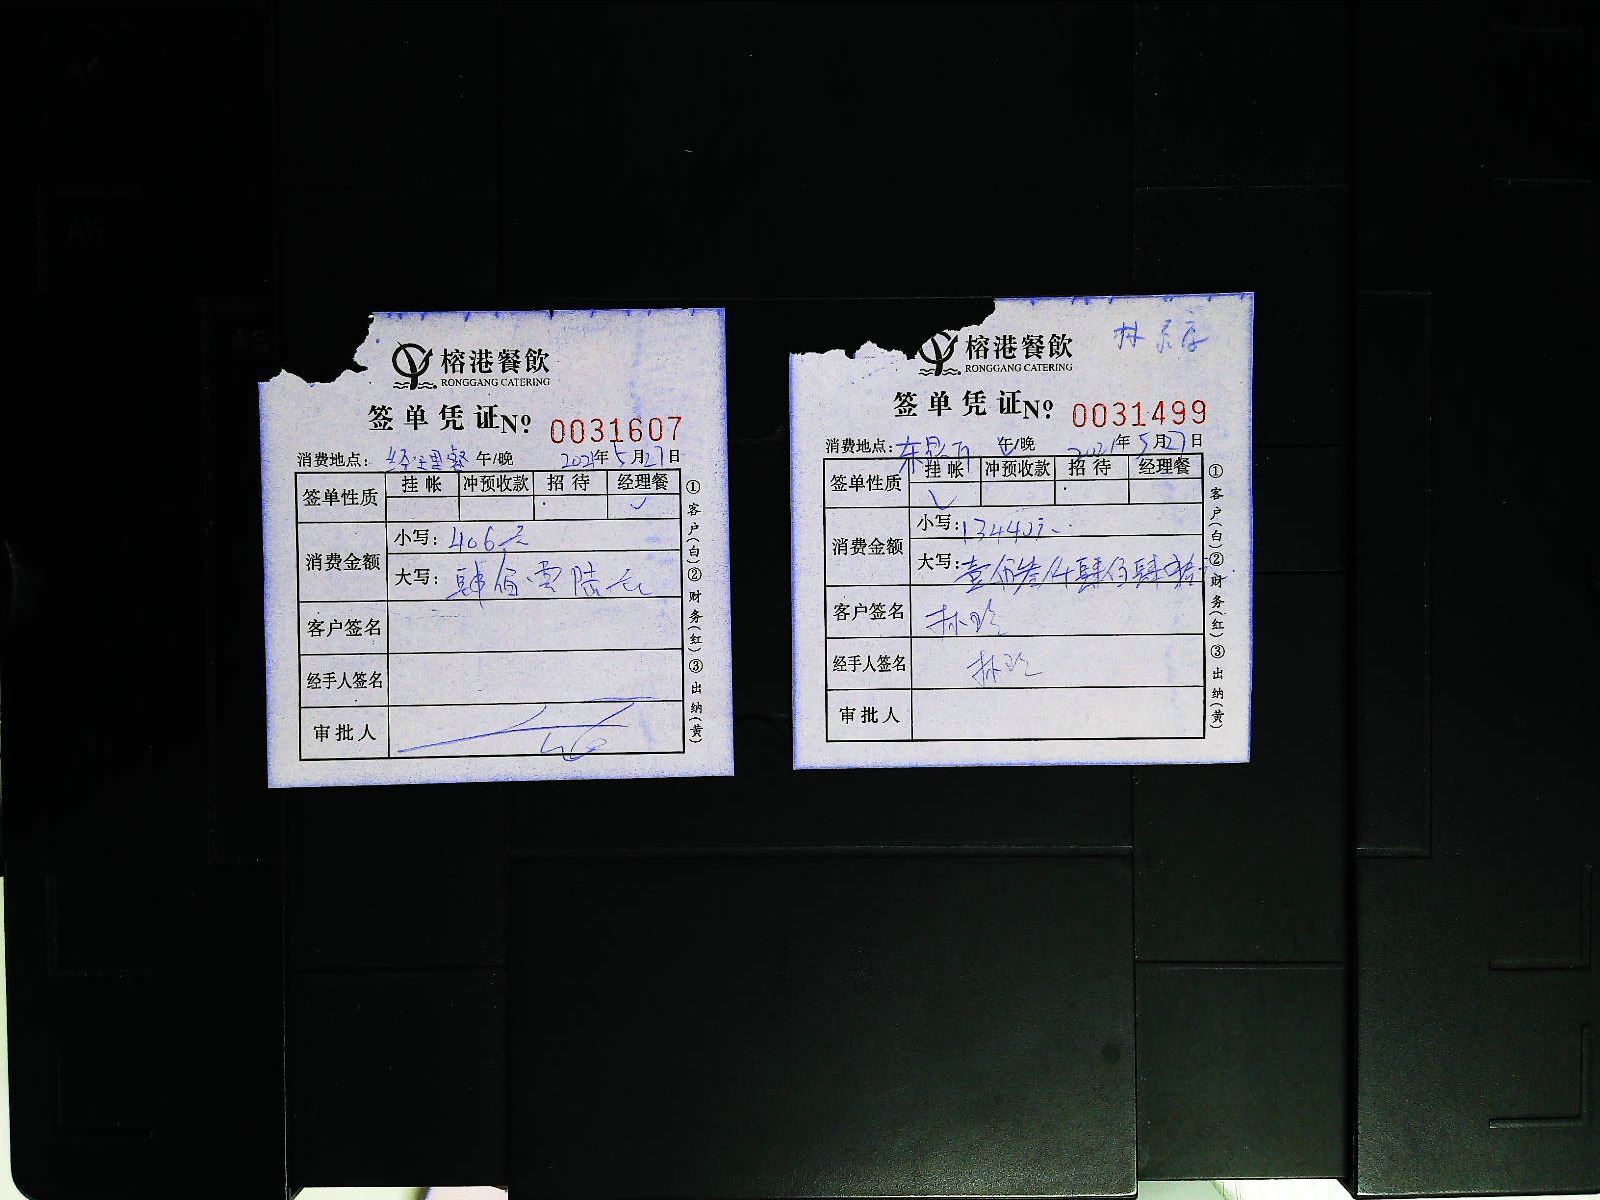 榕港餐飲
RONGGANG CATERING
签单凭证 No 0031607
消费地点: 经理餐 午/晚 2021年5月27日
签单性质 挂帐 冲预收款 招待 经理餐
✓
消费金额
小写: 406元
大写: 肆佰零陆元
客户签名
经手人签名
审批人
①客户(白)②财务(红)③出纳(黄)
林
榕港餐飲
RONGGANG CATERING
签单凭证 No 0031499
消费地点: 午/晚 2021年5月27日
签单性质 挂帐 冲预收款 招待 经理餐
✓
消费金额
小写: 13440元
大写: 肆佰肆拾
客户签名 林
经手人签名 林
审批人
①客户(白)②财务(红)③出纳(黄)
A5